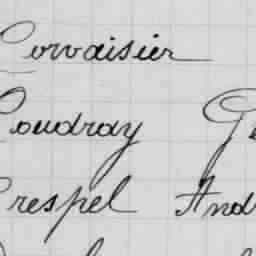 Corvaisier
Coudray
Crespel And